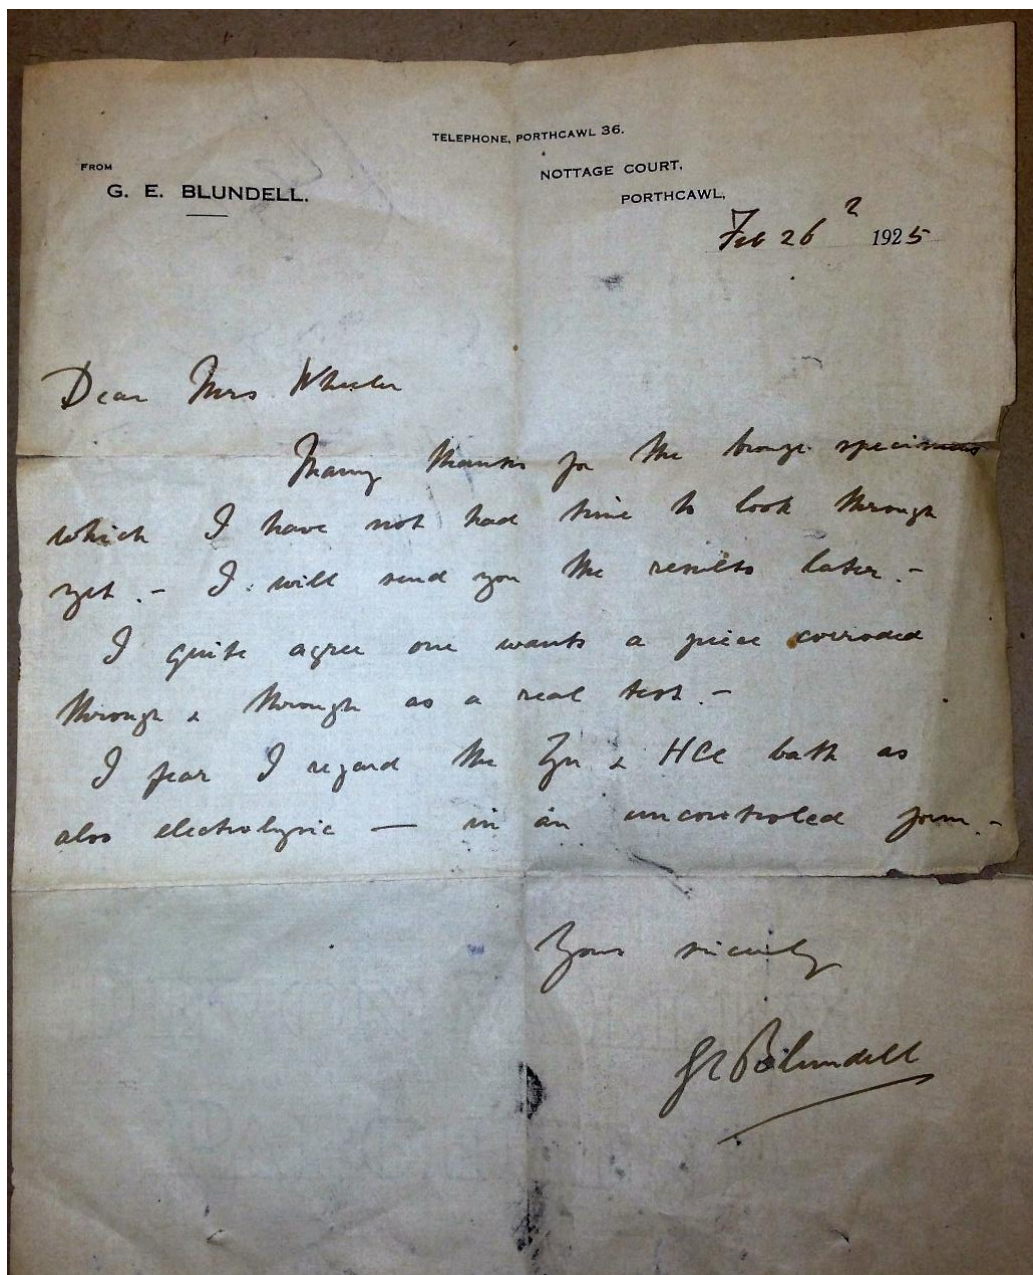 TELEPHONE, PORTHCAWL 36.
FROM
G. E. BLUNDELL.
NOTTAGE COURT,
PORTHCAWL,
Feb 26 1925
Dear Mrs Wheeler
Many thanks for the bronze specimens
which I have not had time to look through
yet. - I will send you the results later. -
I quite agree one wants a piece corroded
through & through as a real test. -
I fear I regard the Zn & HCl bath as
also electrolytic — in an uncontroled form. -
Yours sincerely
GE Blundell